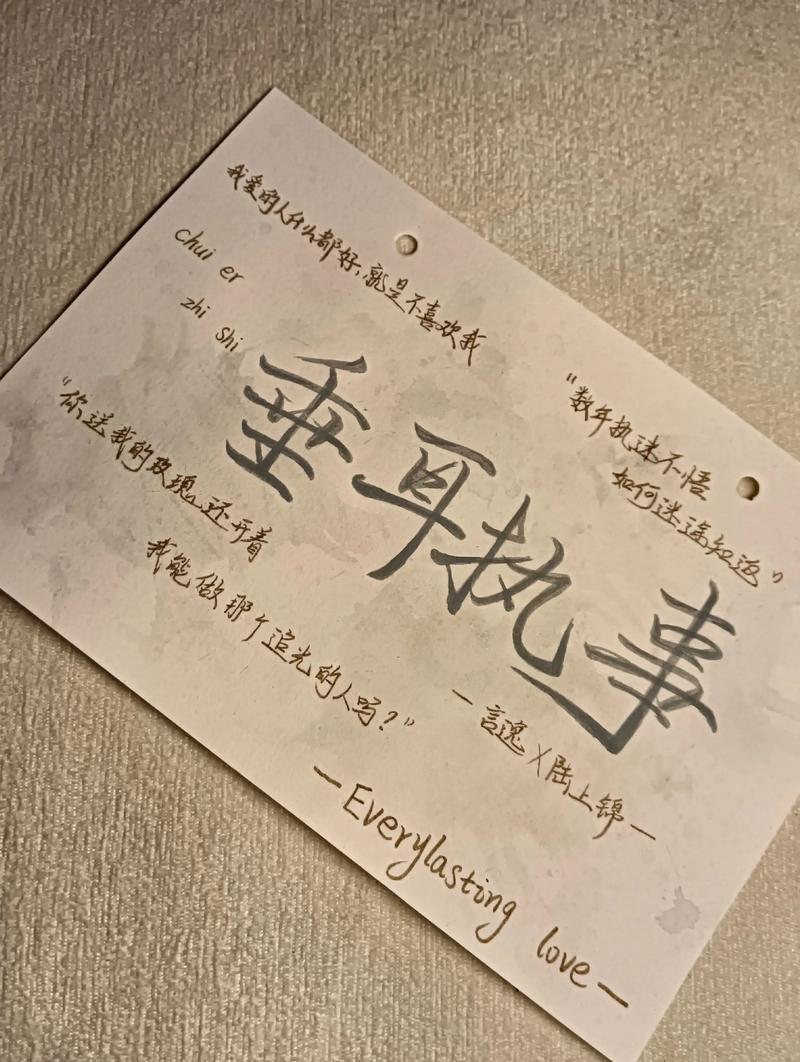 我爱的人什么都好，就是不喜欢我
chui er
zhi shi
垂耳执事
"数年执迷不悟
如何迷途知返"
"你送我的玫瑰还开着
我能做那个追光的人吗？"
—言逸X陆上锦—
—Everylasting love—